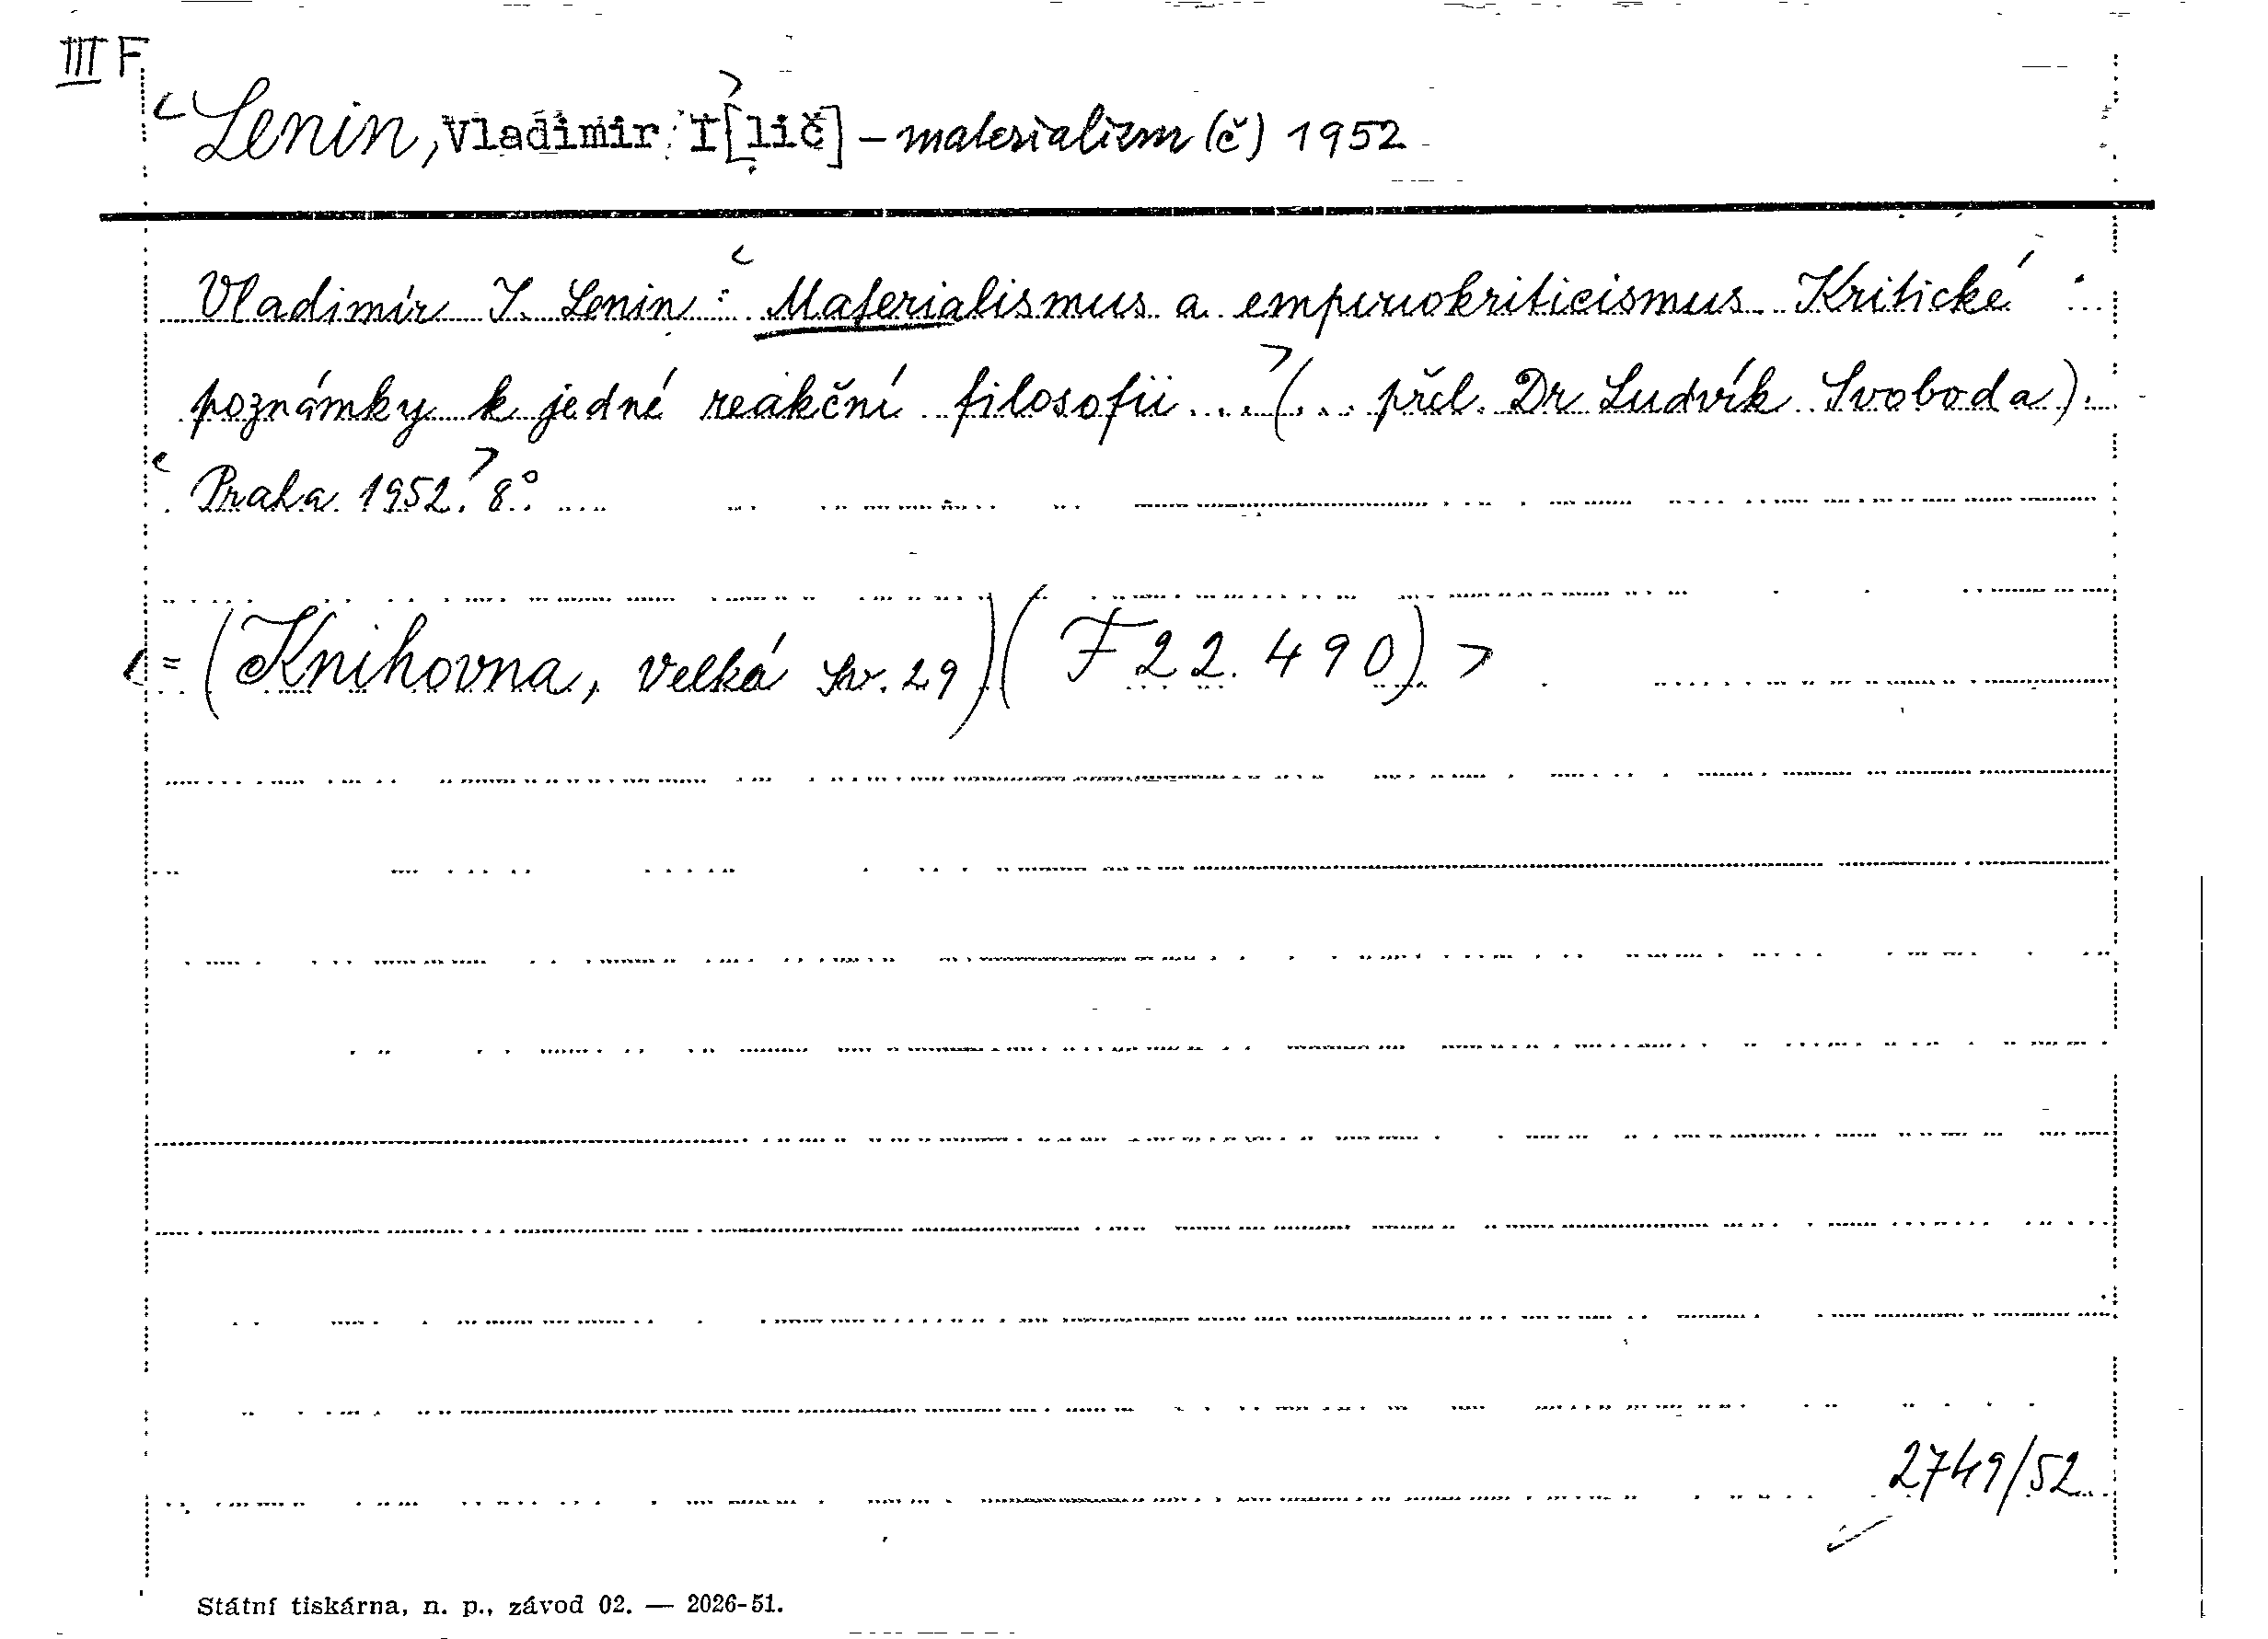 III F
Lenin, Vladimir I[lič] - materializm (č) 1952
Vladimír I. Lenin: Materialismus a empiriokriticismus. Kritické
poznámky k jedné reakční filosofii ... (... přel. Dr Ludvík Svoboda).
Praha 1952. 8°.
= (Knihovna, Velká sv. 29) (F 22.490)
2749/52
Státní tiskárna, n. p., závod 02. — 2026-51.